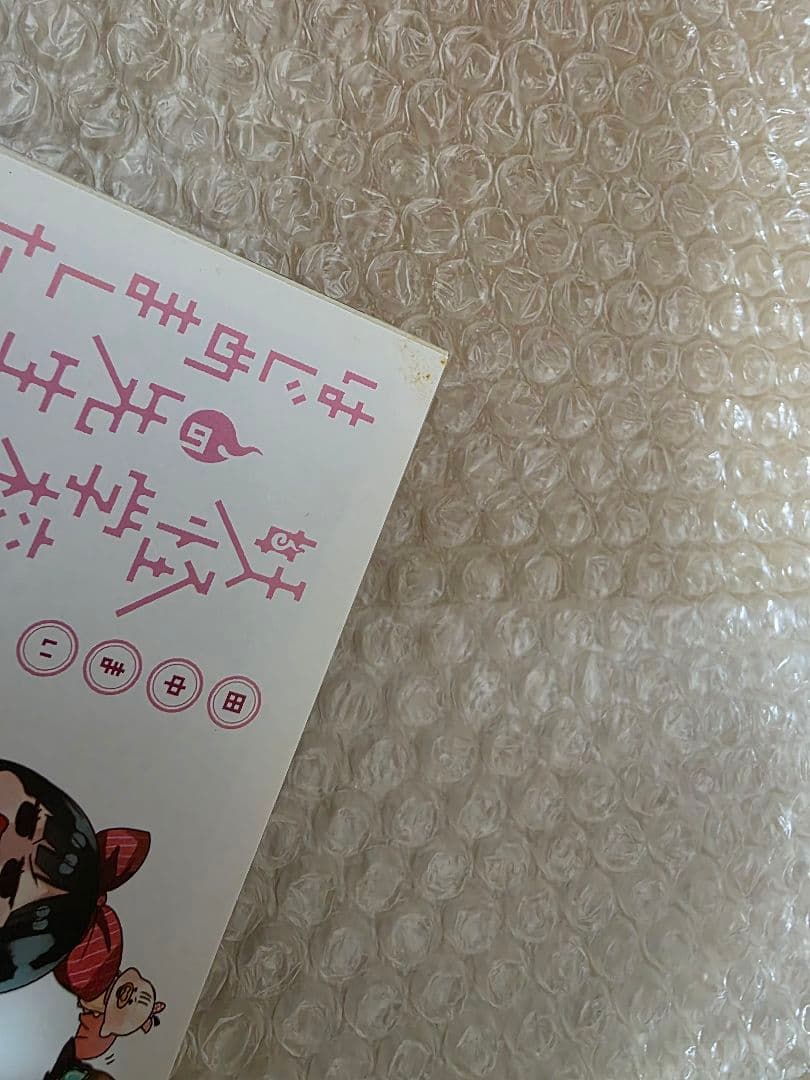 田中まい
妖怪学校
の先生
はじめました